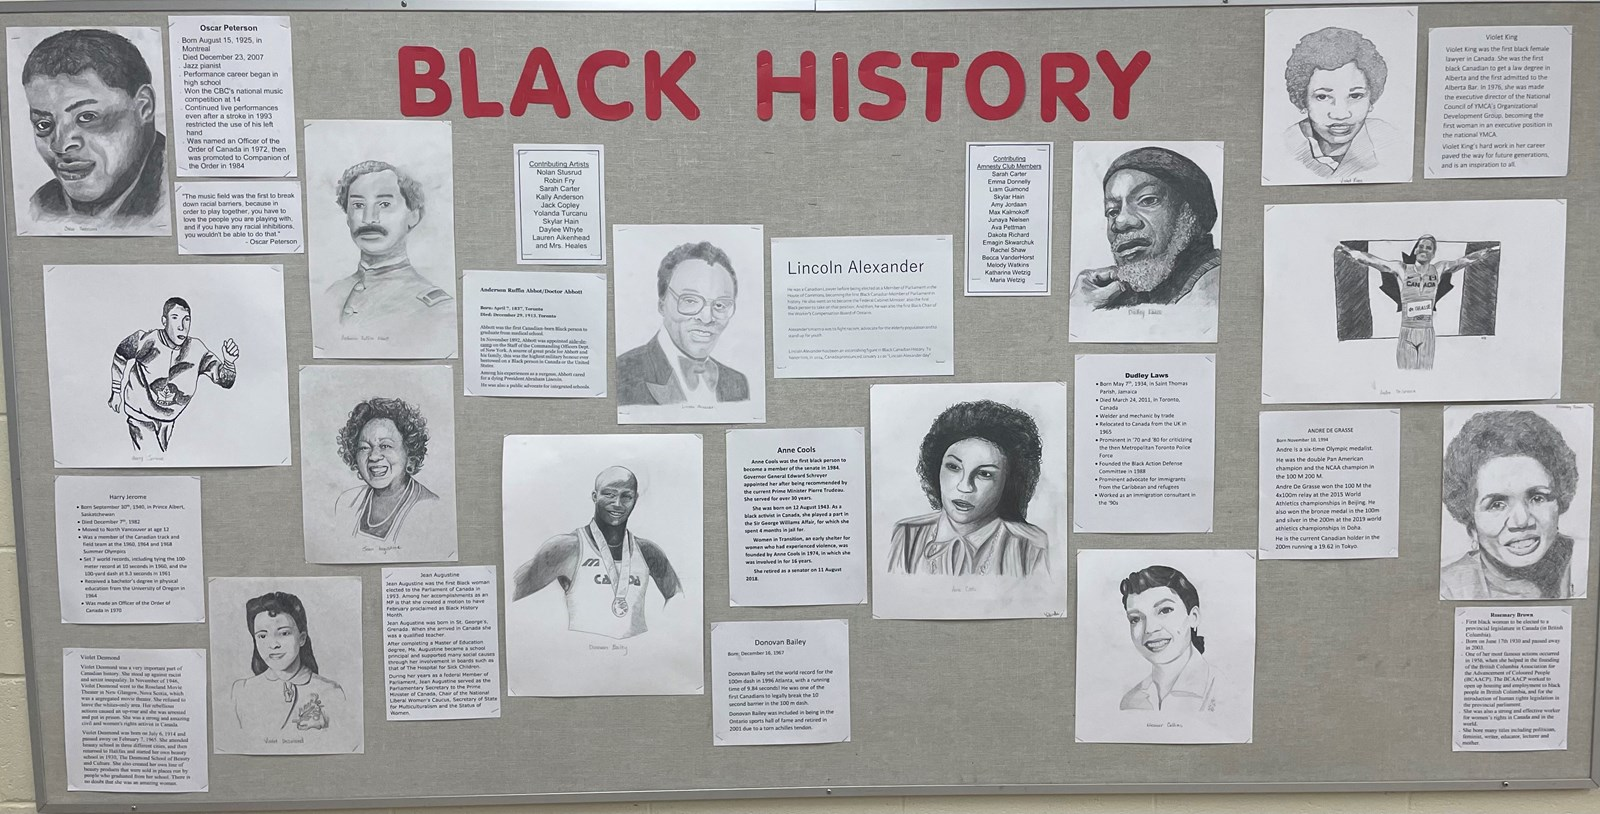 BLACK HISTORY
Oscar Peterson
Born August 15, 1925, in
Montreal
Died December 23, 2007
Jazz pianist
Performance career began in
high school
Won the CBC's national music
competition at 14
Continued live performances
even after a stroke in 1993
restricted the use of his left
hand
Was named an Officer of the
Order of Canada in 1972, then
was promoted to Companion of
the Order in 1984
"The music field was the first to break
down racial barriers, because in
order to play together, you have to
love the people you are playing with,
and if you have any racial inhibitions,
you wouldn't be able to do that."
- Oscar Peterson
Contributing Artists
Nolan Slusrud
Robin Fry
Sarah Carter
Kally Anderson
Jack Copley
Yolanda Turcanu
Skylar Hain
Daylee Whyte
Lauren Aikenhead
and Mrs. Heales
Contributing
Amnesty Club Members
Sarah Carter
Emma Donnelly
Liam Guimond
Skylar Hain
Amy Jordaan
Max Kalmokoff
Junaya Nielsen
Ava Pettman
Dakota Richard
Emagin Skwarchuk
Rachel Shaw
Becca VanderHorst
Melody Watkins
Katharina Wetzig
Maria Wetzig
Violet King
Violet King was the first black female
lawyer in Canada. She was the first
black Canadian to get a law degree in
Alberta and the first admitted to the
Alberta Bar. In 1976, she was made
the executive director of the National
Council of YMCA's Organizational
Development Group, becoming the
first woman in an executive position in
the national YMCA.
Violet King's hard work in her career
paved the way for future generations,
and is an inspiration to all.
Anderson Ruffin Abbot/Doctor Abbott
Born: April 7, 1837, Toronto
Died: December 29, 1913, Toronto
Abbott was the first Canadian-born Black person to
graduate from medical school.
In November 1892, Abbott was appointed aide-de-
camp on the Staff of the Commanding Officers Dept.
of New York. A source of great pride for Abbott and
his family, this was the highest military honour ever
bestowed on a Black person in Canada or the United
States.
Among his experiences as a surgeon, Abbott cared
for a dying President Abraham Lincoln.
He was also a public advocate for integrated schools.
Lincoln Alexander
He was a Canadian Lawyer before being elected as a Member of Parliament in the
House of Commons, becoming the first Black Canadian Member of Parliament in
Dudley Laws
Dudley Laws
Born May 7th, 1934, in Saint Thomas
Parish, Jamaica
Died March 24, 2011, in Toronto,
Canada
Welder and mechanic by trade
Relocated to Canada from the UK in
1965
Prominent in '70 and '80 for criticizing
the then Metropolitan Toronto Police
Force
Founded the Black Action Defense
Committee in 1988
Prominent advocate for immigrants
from the Caribbean and refugees
Worked as an immigration consultant in
the '90s
CANADA
ANDRE DE GRASSE
Born November 10, 1994
Andre is a six-time Olympic medalist.
He was the double Pan American
champion and the NCAA champion in
the 100 M 200 M.
Andre De Grasse won the 100 M the
4x100m relay at the 2015 World
Athletics Championships in Beijing. He
also won the bronze medal in the 100m
and silver in the 200m at the 2019 world
athletics championships in Doha.
He is the current Canadian holder in the
200m running a 19.62 in Tokyo.
Harry Jerome
Born September 30th, 1940, in Prince Albert,
Saskatchewan
Died December 7th, 1982
Moved to North Vancouver at age 12
Was a member of the Canadian track and
field team at the 1960, 1964 and 1968
Summer Olympics
Set 7 world records, including tying the 100-
meter record at 10 seconds in 1960, and the
100-yard dash at 9.3 seconds in 1961
Received a bachelor's degree in physical
education from the University of Oregon in
1964
Was made an Officer of the Order of
Canada in 1970
Jean Augustine
Jean Augustine
Jean Augustine was the first Black woman
elected to the Parliament of Canada in
1993. Among her accomplishments as an
MP is that she created a motion to have
February proclaimed as Black History
Month.
Jean Augustine was born in St. George's,
Grenada. When she arrived in Canada she
was a qualified teacher.
After completing a Master of Education
degree, Ms. Augustine became a school
principal and supported many social causes
through her involvement in boards such as
that of The Hospital for Sick Children.
During her years as a federal Member of
Parliament, Jean Augustine served as the
Parliamentary Secretary to the Prime
Minister of Canada, Chair of the National
Liberal Women's Caucus, Secretary of State
for Multiculturalism and the Status of
Women.
CANADA
Donovan Bailey
Anne Cools
Anne Cools was the first black person to
become a member of the senate in 1984.
Governor General Edward Schreyer
appointed her after being recommended by
the current Prime Minister Pierre Trudeau.
She served for over 30 years.
She was born on 12 August 1943. As a
black activist in Canada, she played a part in
the Sir George Williams Affair, for which she
spent 4 months in jail for.
Women in Transition, an early shelter for
women who had experienced violence, was
founded by Anne Cools in 1974, in which she
was involved in for 16 years.
She retired as a senator on 11 August
2018.
Donovan Bailey
Born: December 16, 1967
Donovan Bailey set the world record for the
100m dash in 1996 Atlanta, with a running
time of 9.84 seconds! He was one of the
first Canadians to legally break the 10
second barrier in the 100 m dash.
Donovan Bailey was included in being in the
Ontario sports hall of fame and retired in
2001 due to a torn achilles tendon.
Violet Desmond
Violet Desmond was a very important part of
Canadian history. She stood up against racist
and sexist inequality. In November of 1946,
Violet Desmond went in the Roseland Movie
Theater in New Glasgow, Nova Scotia, which
was a segregated movie theater. She refused to
leave the whites-only area. Her rebellious
actions caused an up-roar and she was arrested
and put in prison. She was a strong and amazing
civil and women's rights activist in Canada.
Violet Desmond was born on July 6, 1914 and
passed away on February 7, 1965. She attended
beauty school in three different cities, and then
returned to Halifax and started her own beauty
school in 1930, The Desmond School of Beauty
and Culture. She also created her own line of
beauty products that were sold in places run by
people who graduated from her school. There is
no doubt that she was an amazing woman.
Rosemary Brown
First black woman to be elected to a
provincial legislature in Canada (in British
Columbia)
Born on June 17th 1930 and passed away
in 2003.
One of her most famous actions occurred
in 1956, when she helped in the founding
of the British Columbia Association for
the Advancement of Coloured People
(BCAACP). The BCAACP worked to
open up housing and employment to black
people in British Columbia, and for the
introduction of human rights legislation in
the provincial parliament.
She was also a strong and effective worker
for women's rights in Canada and in the
world.
She bore many titles including politician,
feminist, writer, educator, lecturer and
mother.